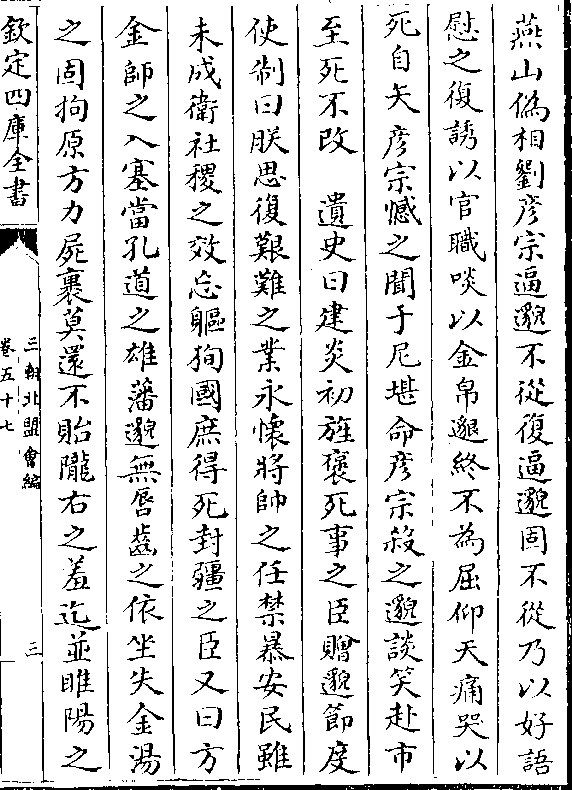 燕山偽相劉彦宗逼邈不從復逼邈固不從乃以好語
慰之復誘以官職啖以金帛邈終不為屈仰天痛哭以
死自矢彦宗憾之聞于尼堪命彦宗殺之邈談笑赴市
至死不改　遺史曰建炎初旌褒死事之臣贈邈節度
使制曰朕思復艱難之業永懷將帥之任禁暴安民雖
未成衛社稷之效忘軀狥國庶得死封疆之臣又曰方
金師之入塞當孔道之雄藩邈無唇齒之依坐失金湯
之固拘原方力屍裹莫還不貽隴右之羞迄並睢陽之
欽定四庫全書
三朝北盟會編
卷五十七
三